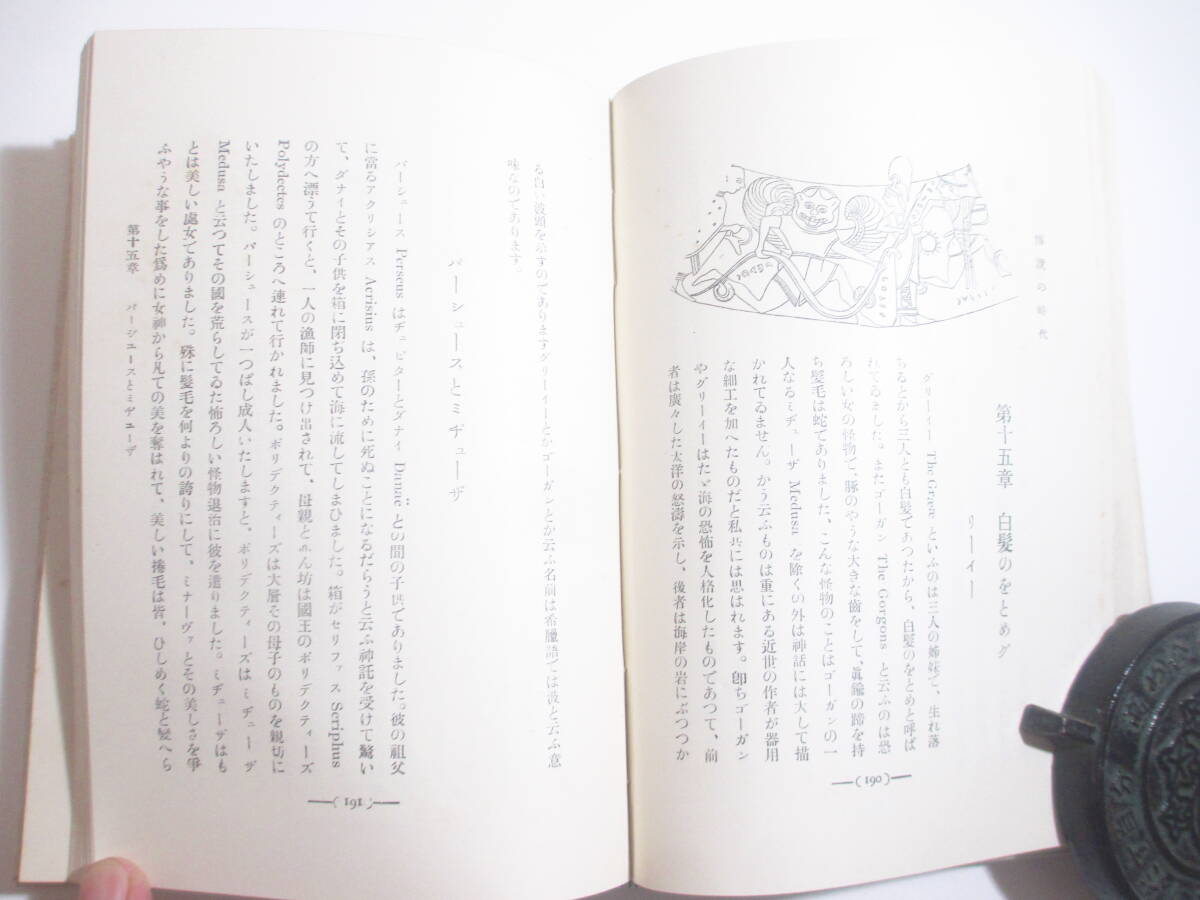 傳説の時代
第十五章　白髮のをとめグ
リーイー
グリーイー The Graeæ といふのは三人の姉妹で、生れ落
ちるとから三人とも白髮であつたから、白髮のをとめと呼ば
れてゐました。またゴーガン The Gorgons と云ふのは恐
ろしい女の怪物で、豚のやうな大きな齒をして、眞鍮の蹄を持
ち髮毛は蛇でありました、こんな怪物のことはゴーガンの一
人なるミヂューザ Medusa を除くの外は神話には大して描
かれてゐません。かう云ふものは重にある近世の作者が器用
な細工を加へたものだと私共には思はれます。卽ちゴーガン
やグリーイーはたゞ海の恐怖を人格化したものであつて、前
者は廣々した太洋の怒濤を示し、後者は海岸の岩にぶつつか
(190)
る白い波頭を示すのでありますグリーイーとかゴーガンとか云ふ名前は希臘語では波と云ふ意
味なのであります。
パーシュースとミヂューザ
パーシュース Perseus はヂュピターとダナイ Danaë との間の子供でありました。彼の祖父
に當るアクリシアス Acrisius は、孫のために死ぬことになるだらうと云ふ神託を受けて驚い
て、ダナイとその子供を箱に閉ち込めて海に流してしまひました。箱がセリファス Seriphus
の方へ漂うて行くと、一人の漁師に見つけ出されて、母親と赤ん坊は國王のポリデクティーズ
Polydectes のところへ連れて行かれました。ポリデクティーズは大層その母子のものを親切に
いたしました。パーシュースが一つぱし成人いたしますと、ポリデクティーズはミヂューザ
Medusa と云つてその國を荒らしてゐた怖ろしい怪物退治に彼を遣りました。ミヂューザはも
とは美しい處女でありました。殊に髮毛を何よりの誇りにして、ミナーヴァとその美しさを爭
ふやうな事をした爲めに女神から凡ての美を奪はれて、美しい捲毛は皆、ひしめく蛇と變へら
第十五章　パーシュースとミヂューザ
(191)